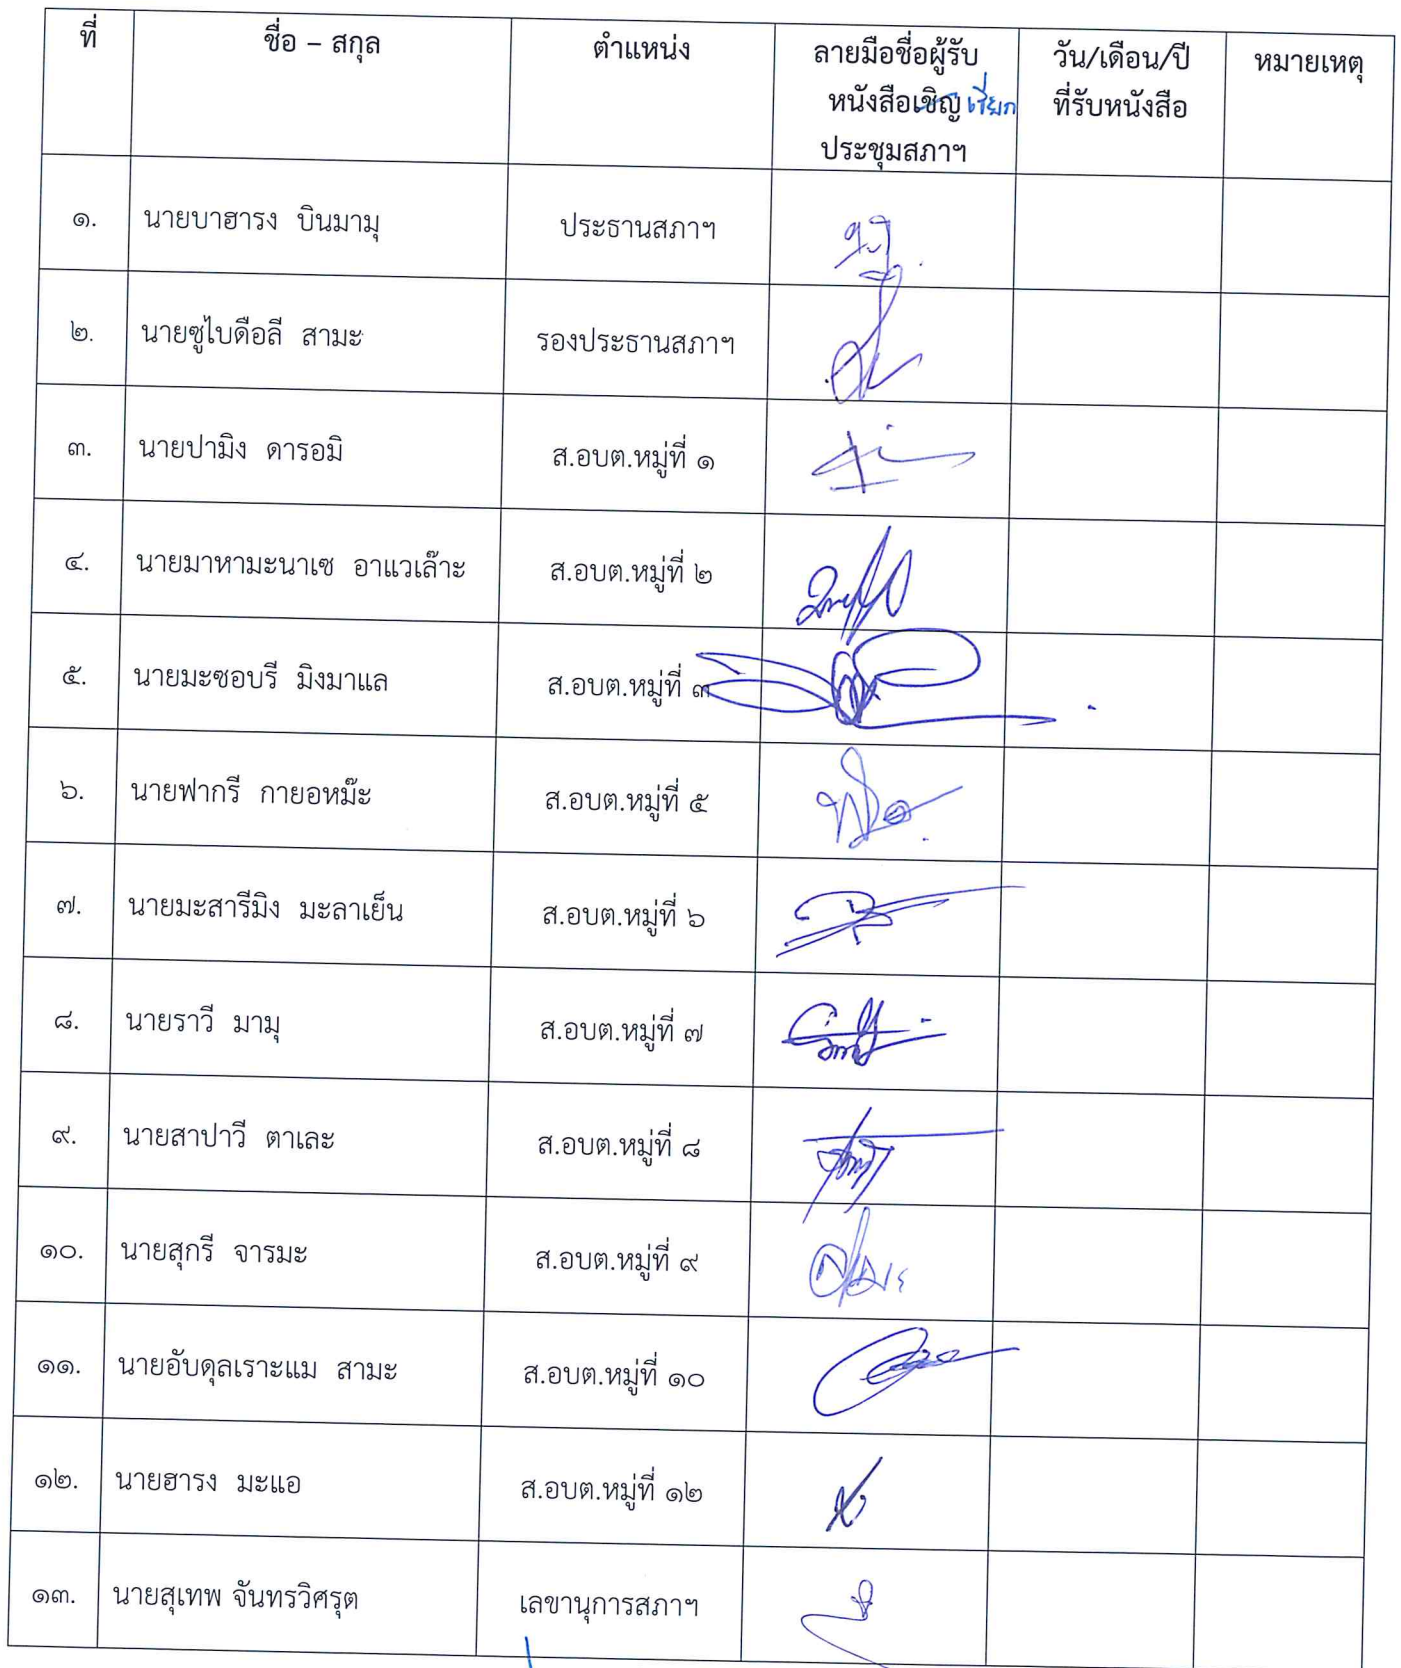 ที่ ชื่อ – สกุล ตำแหน่ง ลายมือชื่อผู้รับ วัน/เดือน/ปี หมายเหตุ
หนังสือเชิญ เรียก ที่รับหนังสือ
ประชุมสภาฯ
๑. นายบาฮารง บินมามุ ประธานสภาฯ
๒. นายซูไบดือลี สามะ รองประธานสภาฯ
๓. นายปามิง ดารอมิ ส.อบต.หมู่ที่ ๑
๔. นายมาหามะนาเซ อาแวเล๊าะ ส.อบต.หมู่ที่ ๒
๕. นายมะซอบรี มิงมาแล ส.อบต.หมู่ที่ ๓
๖. นายฟากรี กายอหม๊ะ ส.อบต.หมู่ที่ ๕
๗. นายมะสารีมิง มะลาเย็น ส.อบต.หมู่ที่ ๖
๘. นายราวี มามุ ส.อบต.หมู่ที่ ๗
๙. นายสาปาวี ตาเละ ส.อบต.หมู่ที่ ๘
๑๐. นายสุกรี จารมะ ส.อบต.หมู่ที่ ๙
๑๑. นายอับดุลเราะแม สามะ ส.อบต.หมู่ที่ ๑๐
๑๒. นายฮารง มะแอ ส.อบต.หมู่ที่ ๑๒
๑๓. นายสุเทพ จันทรวิศรุต เลขานุการสภาฯ